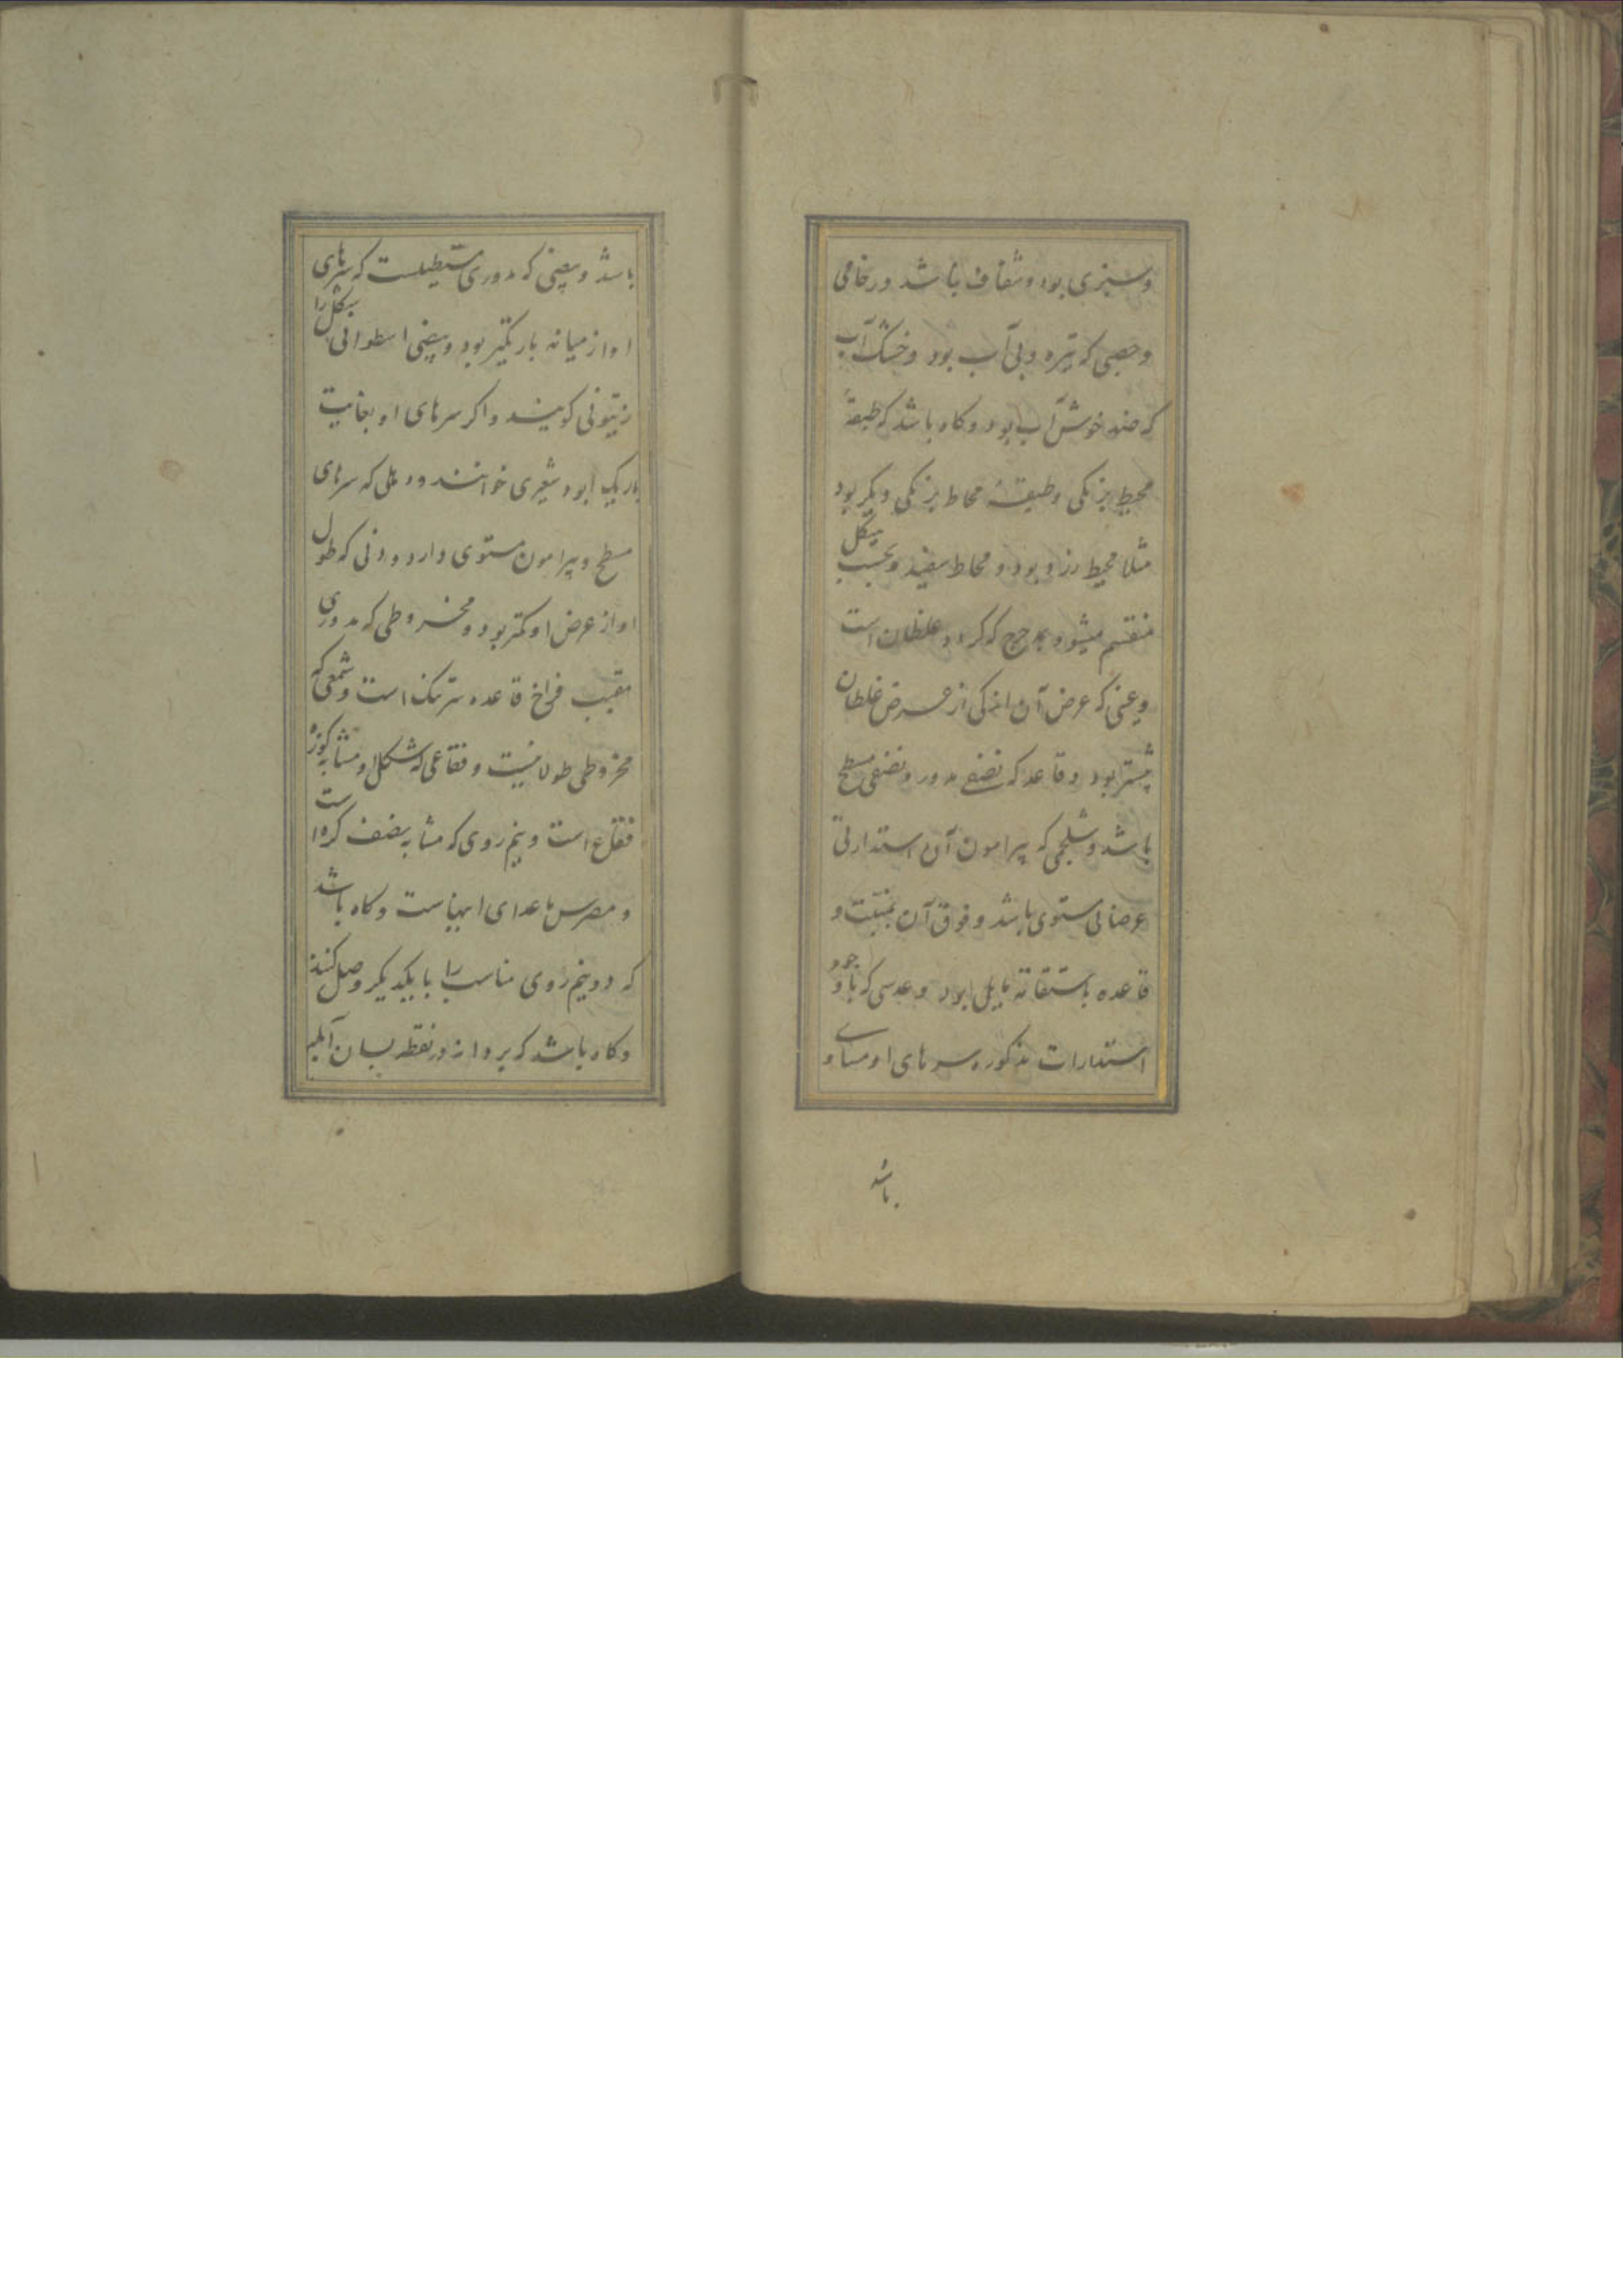 وسبزی بود و شفاف باشد و رخامی
و جصی که تیره و بی آب بود و خشک آب
که ضد خوش آب بود و گاه باشد که طبقهٔ
محیط برنکی و طبقهٔ محاط برنکی دیکر بود
مثلا محیط زرد بود و محاط سفید و بحسب هیکل
منقسم میشود بمدحرج که کره و غلطان است
و عینی که عرض آن اندکی از عرض غلطان
بیشتر بود و قاعد که نصفی مدور و نصفی مسطح
باشد و شلجمی که پیرامون آن استدارتی
عرضانی مستوی باشد و فوق آن بمنبت و
قاعده باستقامه مایل بود و عدسی که با وجود
استدارات مذکوره سرهای او مساوی
باشد
باشد و بیضی که مدوری مستطیلست که سرهای
او از میانه باریکتر بود و بیضی اسطوانی هیکل را
زیتونی کویند و اکر سرهای او بغایت
باریک بود شعیری خوانند و دبلی که سرهای
مسطح و پیرامون مستوی دارد و دنی که طول
او از عرض او کمتر بود و مخروطی که مدوری
مقبب فراخ قاعده سرتنک است و شمعی که
مخروطی طولانیست و فقاعی که شکل او مشابه کوزه
فقاع است و نیم روی که مشابه نصف کره است
و مضرس ماعدای اینهاست و کاه باشد
که دو نیم روی مناسب را با یکدیکر وصل کنند
و کاه باشد که بر و از در نقطه بسان آبله